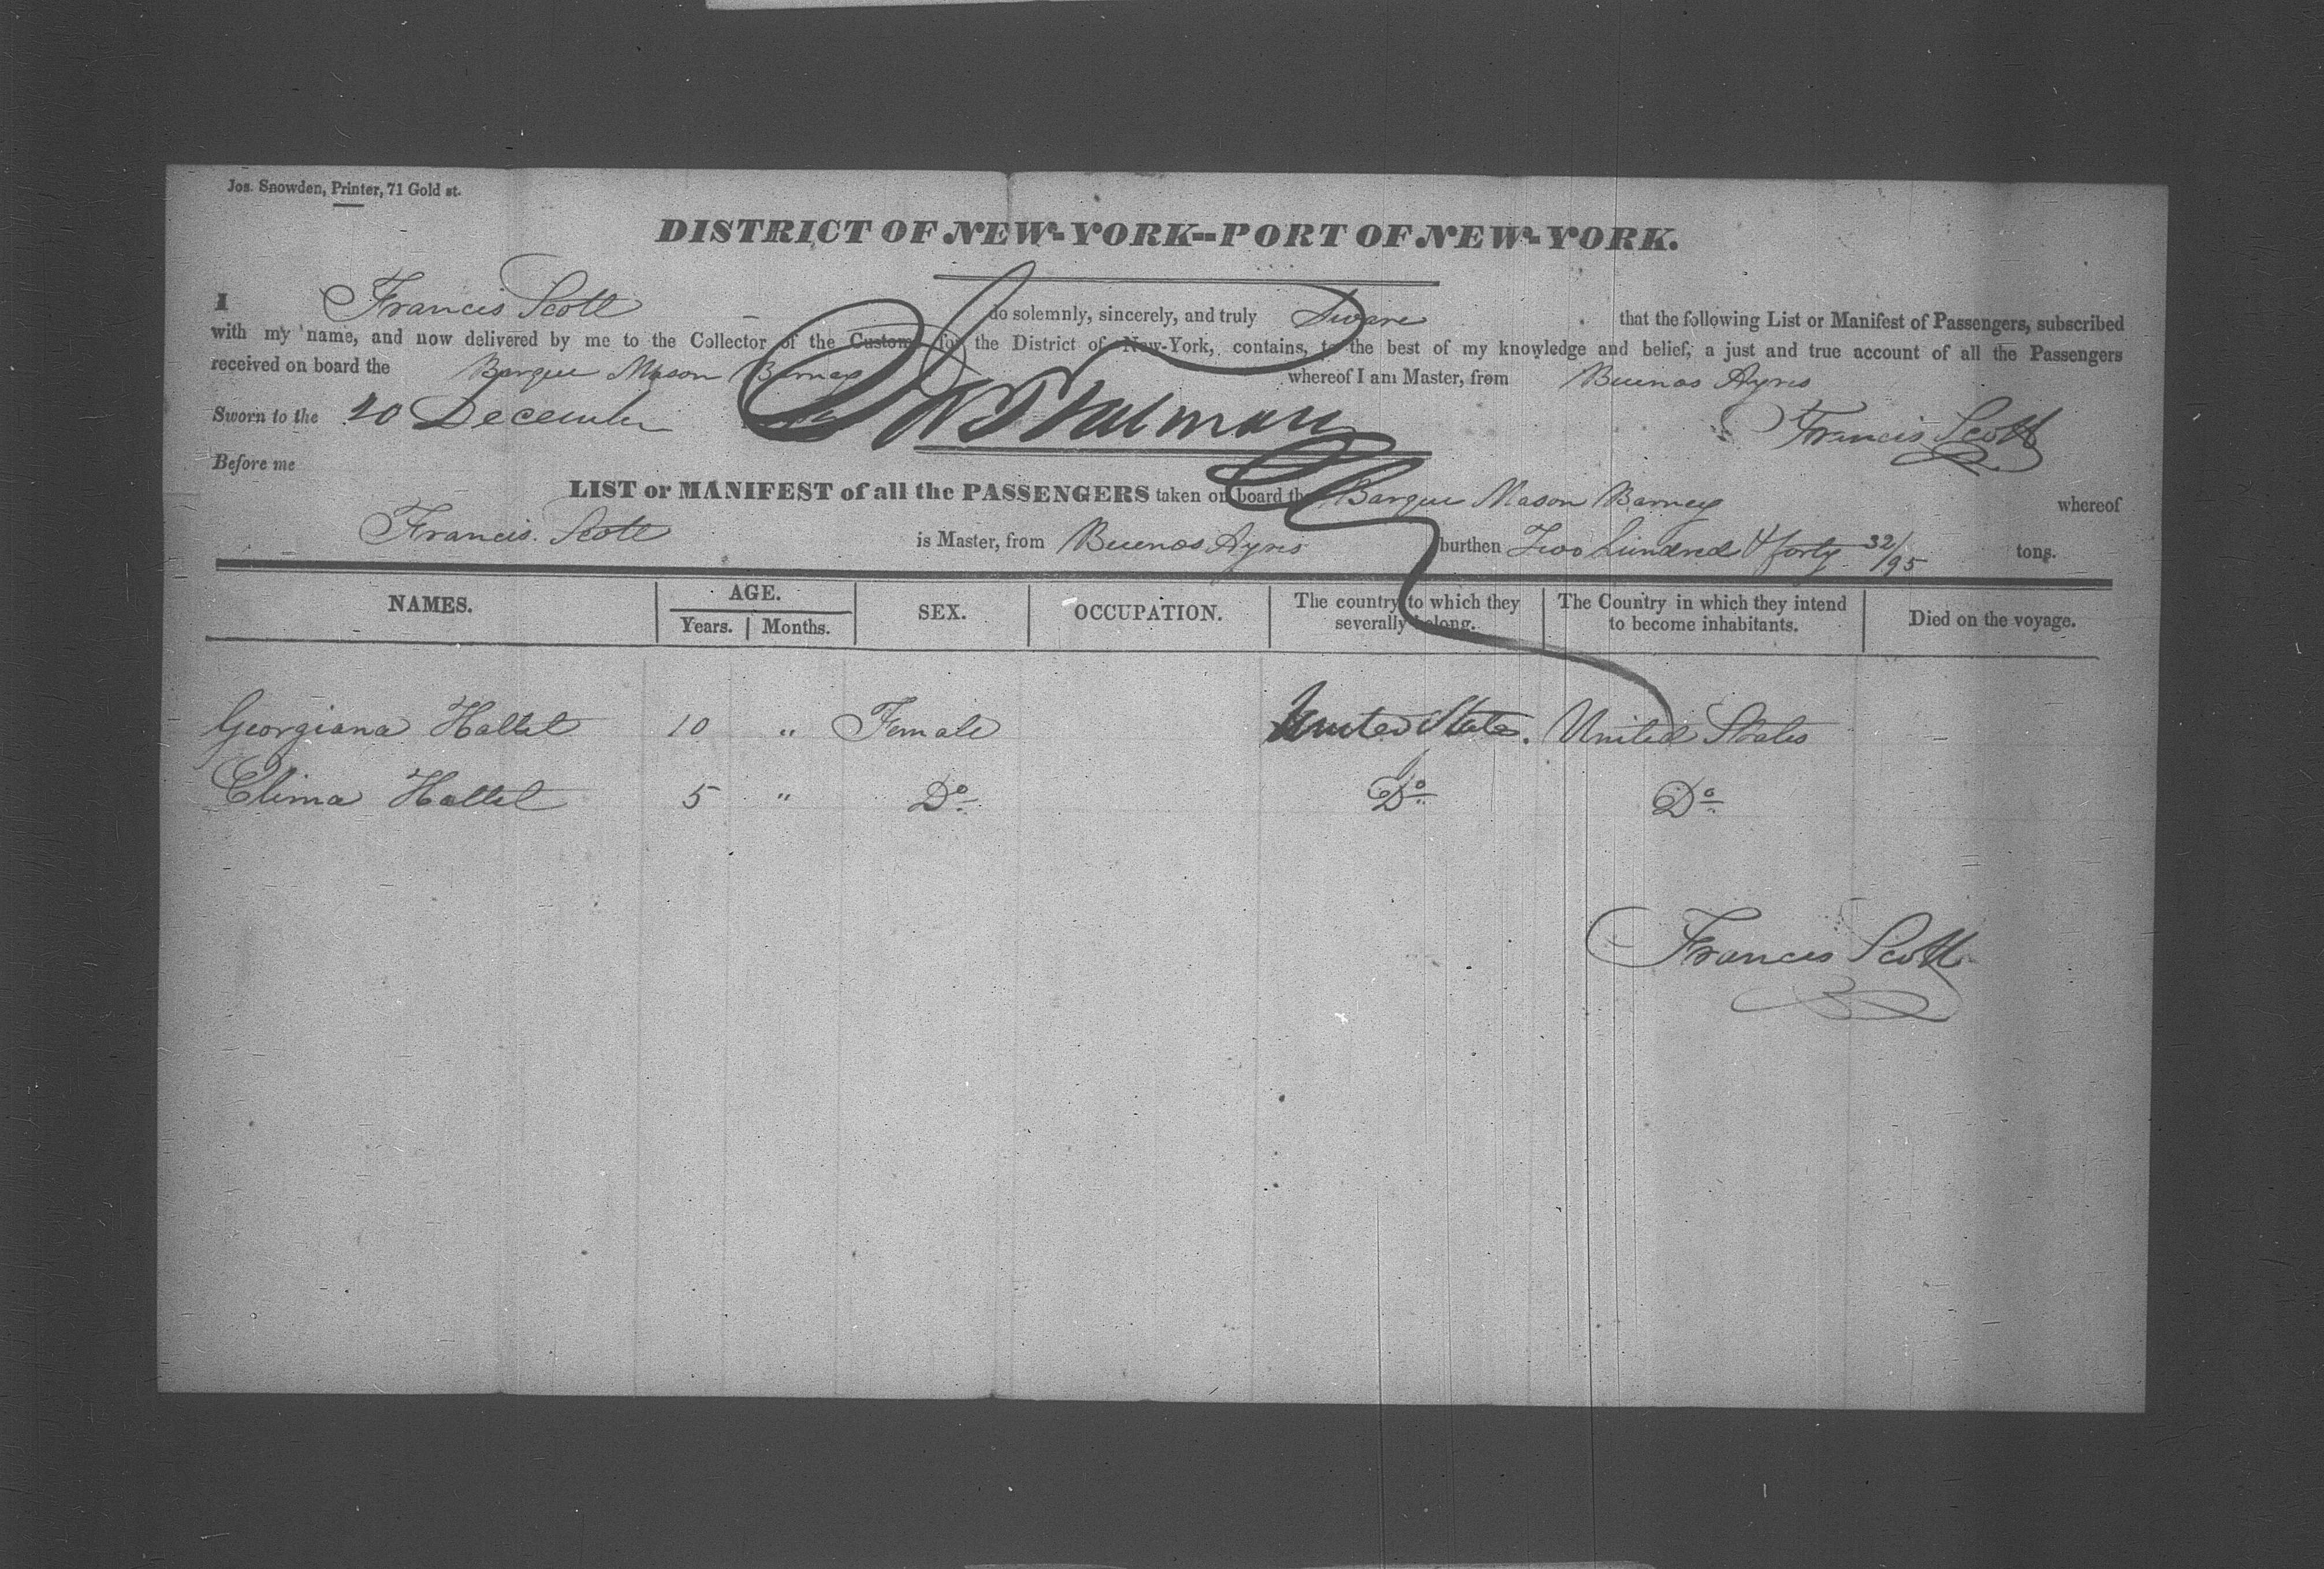 Jos. Snowden, Printer, 71 Gold st.
DISTRICT OF NEW-YORK--PORT OF NEW-YORK.
I Francis Scott do solemnly, sincerely, and truly Sware that the following List or Manifest of Passengers, subscribed
with my name, and now delivered by me to the Collector of the Customs for the District of New-York, contains, to the best of my knowledge and belief, a just and true account of all the Passengers
received on board the Barque Mason Barney whereof I am Master, from Buenos Ayres
Sworn to the 20 December
Francis Scott
Before me
LIST or MANIFEST of all the PASSENGERS taken on board the Barque Mason Barney whereof
Francis Scott is Master, from Buenos Ayres burthen Two hundred & forty 32/95 tons.
NAMES. AGE. SEX. OCCUPATION. The country to which they severally belong. The Country in which they intend to become inhabitants. Died on the voyage.
Years. Months.
Georgiana Hallet 10 " Female United States. United States
Elima Hallet 5 " Do Do Do
Francis Scott